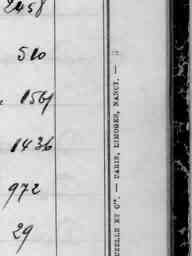 2458
510
1561
1436
972
29
UZELLE ET Cie. — PARIS, LIMOGES, NANCY. —